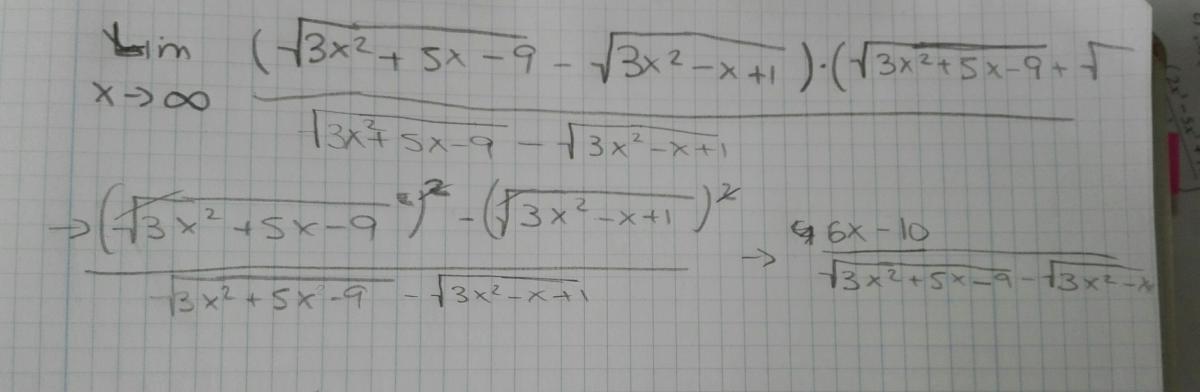 Lim (√3x² + 5x - 9 - √3x² - x + 1) · (√3x² + 5x - 9 + √
x → ∞
√3x² + 5x - 9 - √3x² - x + 1
→ (√3x² + 5x - 9)² - (√3x² - x + 1)² → 6x - 10
√3x² + 5x - 9 - √3x² - x + 1 √3x² + 5x - 9 - √3x² - x